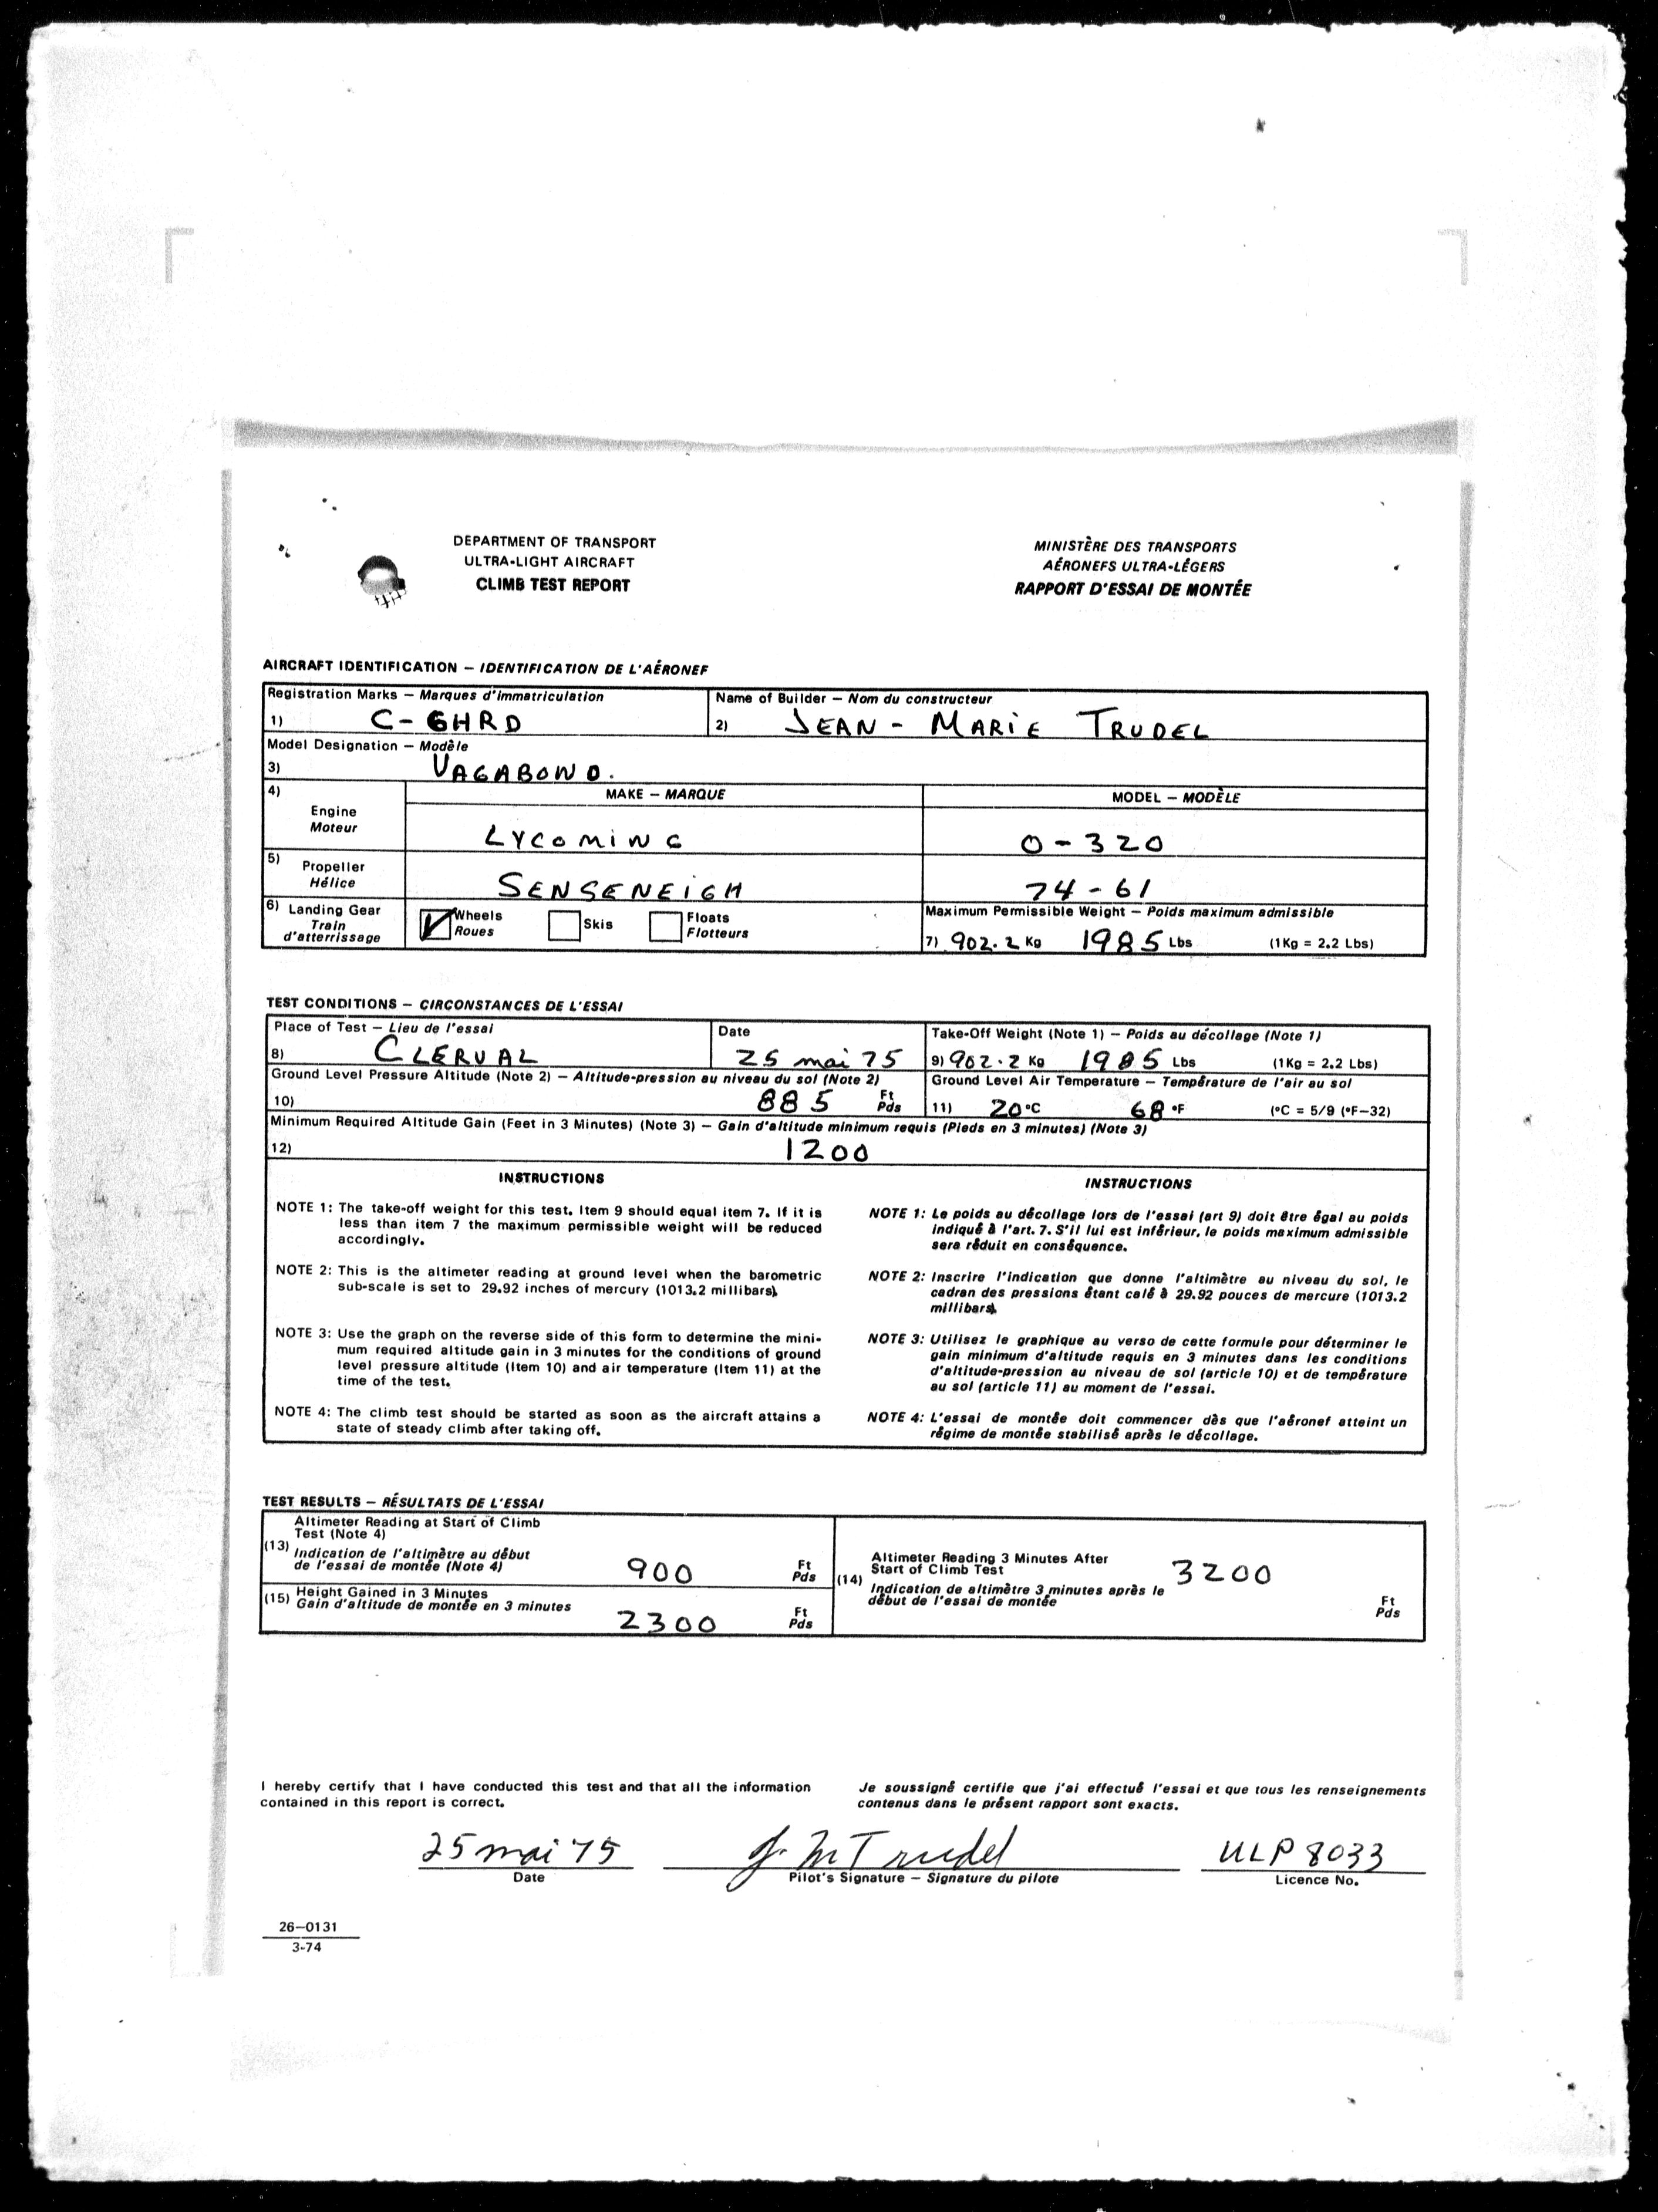 DEPARTMENT OF TRANSPORT
ULTRA-LIGHT AIRCRAFT
CLIMB TEST REPORT
MINISTÈRE DES TRANSPORTS
AÉRONEFS ULTRA-LÉGERS
RAPPORT D'ESSAI DE MONTÉE
AIRCRAFT IDENTIFICATION – IDENTIFICATION DE L'AÉRONEF
Registration Marks – Marques d'immatriculation
1) C-GHRD
Name of Builder – Nom du constructeur
2) JEAN-MARIE TRUDEL
Model Designation – Modèle
3) VAGABOND.
4) Engine
Moteur
MAKE – MARQUE
LYCOMING
MODEL – MODÈLE
O-320
5) Propeller
Hélice
SENSENEIGH
74-61
6) Landing Gear
Train
d'atterrissage
Wheels
Roues
Skis
Floats
Flotteurs
Maximum Permissible Weight – Poids maximum admissible
7) 902.2 Kg 1985 Lbs (1Kg = 2.2 Lbs)
TEST CONDITIONS – CIRCONSTANCES DE L'ESSAI
Place of Test – Lieu de l'essai
8) CLERVAL
Date
25 mai 75
Take-Off Weight (Note 1) – Poids au décollage (Note 1)
9) 902.2 Kg 1985 Lbs (1Kg = 2.2 Lbs)
Ground Level Pressure Altitude (Note 2) – Altitude-pression au niveau du sol (Note 2)
10) 885 Ft
Pds
Ground Level Air Temperature – Température de l'air au sol
11) 20 °C 68 °F (°C = 5/9 (°F–32)
Minimum Required Altitude Gain (Feet in 3 Minutes) (Note 3) – Gain d'altitude minimum requis (Pieds en 3 minutes) (Note 3)
12) 1200
INSTRUCTIONS
NOTE 1: The take-off weight for this test. Item 9 should equal item 7. If it is
less than item 7 the maximum permissible weight will be reduced
accordingly.
NOTE 2: This is the altimeter reading at ground level when the barometric
sub-scale is set to 29.92 inches of mercury (1013.2 millibars).
NOTE 3: Use the graph on the reverse side of this form to determine the mini-
mum required altitude gain in 3 minutes for the conditions of ground
level pressure altitude (Item 10) and air temperature (Item 11) at the
time of the test.
NOTE 4: The climb test should be started as soon as the aircraft attains a
state of steady climb after taking off.
INSTRUCTIONS
NOTE 1: Le poids au décollage lors de l'essai (art 9) doit être égal au poids
indiqué à l'art. 7. S'il lui est inférieur, le poids maximum admissible
sera réduit en conséquence.
NOTE 2: Inscrire l'indication que donne l'altimètre au niveau du sol, le
cadran des pressions étant calé à 29.92 pouces de mercure (1013.2
millibars).
NOTE 3: Utilisez le graphique au verso de cette formule pour déterminer le
gain minimum d'altitude requis en 3 minutes dans les conditions
d'altitude-pression au niveau de sol (article 10) et de température
au sol (article 11) au moment de l'essai.
NOTE 4: L'essai de montée doit commencer dès que l'aéronef atteint un
régime de montée stabilisé après le décollage.
TEST RESULTS – RÉSULTATS DE L'ESSAI
(13) Altimeter Reading at Start of Climb
Test (Note 4)
Indication de l'altimètre au début
de l'essai de montée (Note 4)
900 Ft
Pds
(14) Altimeter Reading 3 Minutes After
Start of Climb Test
Indication de altimètre 3 minutes après le
début de l'essai de montée
3200
Ft
Pds
(15) Height Gained in 3 Minutes
Gain d'altitude de montée en 3 minutes
2300 Ft
Pds
I hereby certify that I have conducted this test and that all the information
contained in this report is correct.
Je soussigné certifie que j'ai effectué l'essai et que tous les renseignements
contenus dans le présent rapport sont exacts.
25 mai 75
Date
J. M Trudel
Pilot's Signature – Signature du pilote
ULP 8033
Licence No.
26–0131
3-74